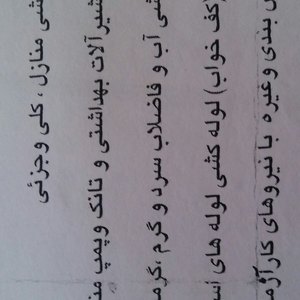 شی منازل ، کلی وجزئی
شیرآلات بهداشتی و تانک وپمپ من
شی آب و فاضلاب سرد و گرم ،گرم
(کف خواب) لوله کشی لوله های
بندی وغیره با نیروهای کارآزم